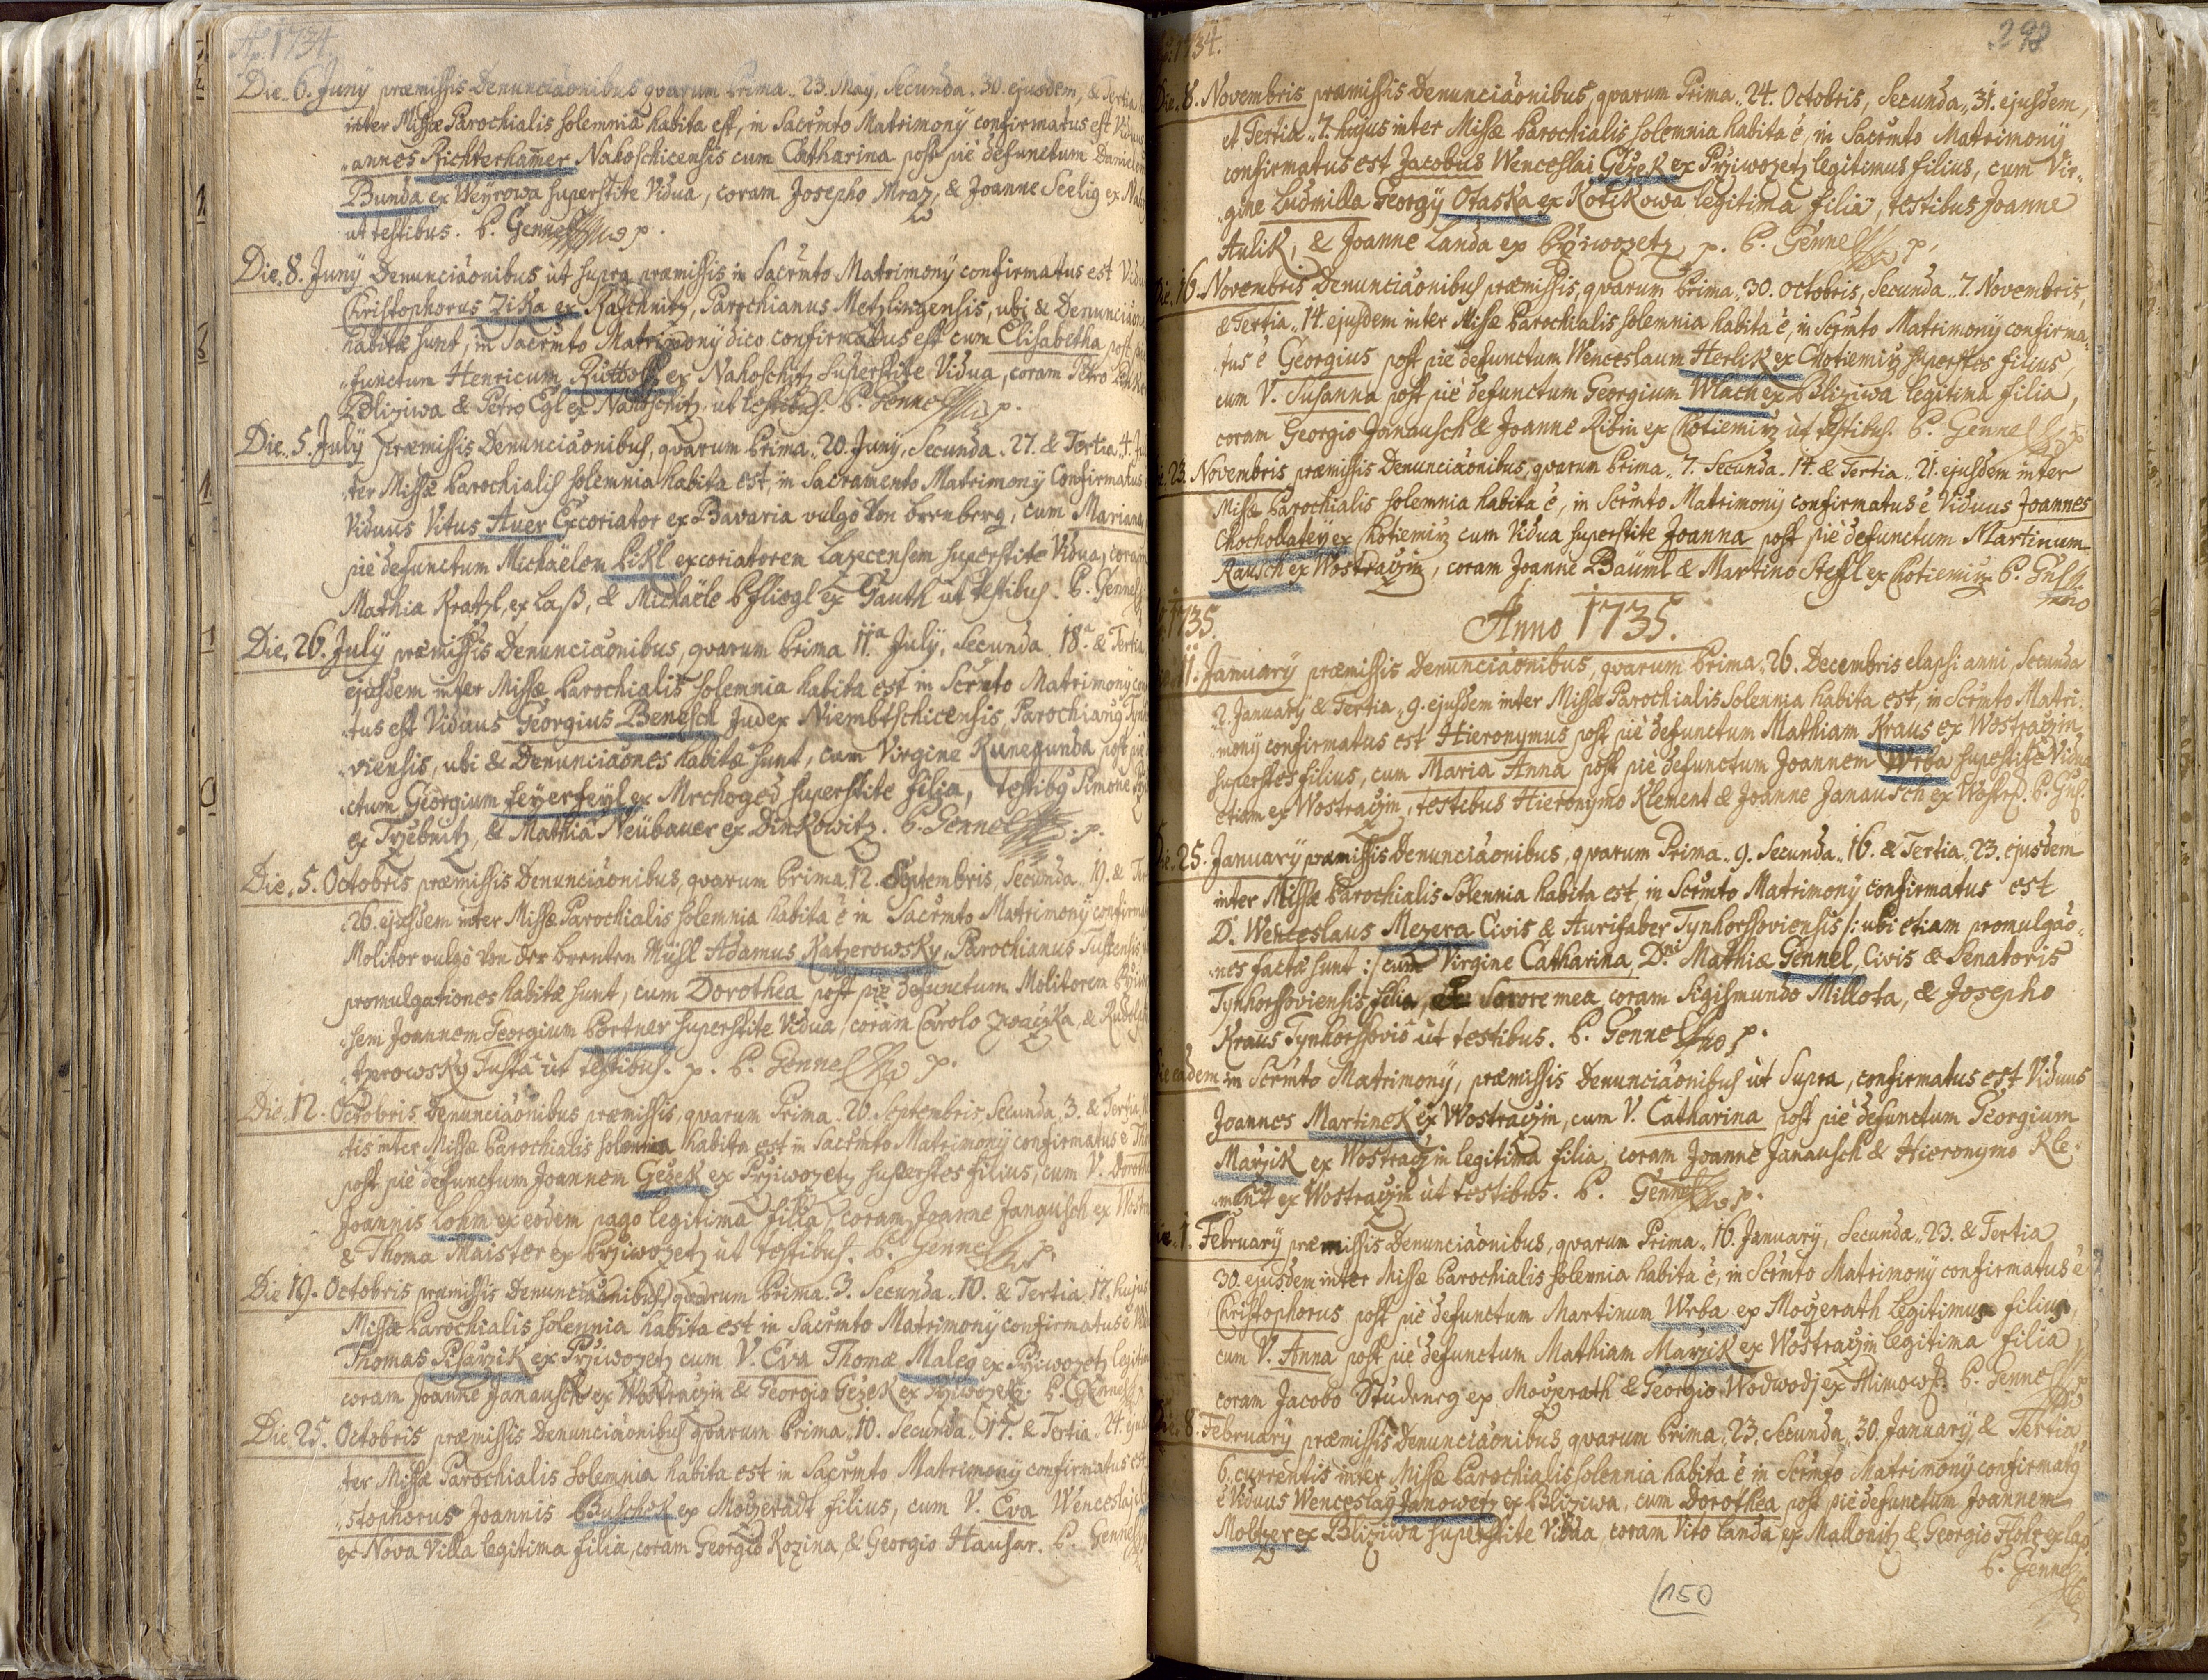 Ao. 1734.
Die. 6. Juny præmissis Denunciāonibus quarum Prima. 23. May, Secunda. 30. ejusdem, & Tertia
inter Missæ Parochialis solemnia habita est, in Sacrmto Matrimony confirmatus est
annes Richterhamer Nahoschicensis cum Catharina post pie defunctum
Bunda ex Weyrowa superstite Vidua, coram Josepho Mraz, & Joanne Seelig ex
ut testibus. P. Gennel mp.
Die. 8. Juny Denunciāonibus ut supra præmissis in Sacrmto Matrimony confirmatus est
Christophorus Zika ex Raschnitz, Parochianus Metzlingensis, ubi &
habitæ sunt, in Sacrmto Matrimony dico confirmatus est cum Elisabetha post
functum Henricum ex Nahoschitz superstite Vidua, coram Petro
Bliziwa & Petro Egl ex Nahoschitz ut testibus. P. Gennel mp.
Die. 5. July præmissis Denunciāonibus, quarum Prima. 20. Juny, Secunda. 27. & Tertia. 4.
ter Missæ Parochialis solemnia habita est, in Sacramento Matrimony Confirmatus
Viduus Vitus Auer Excoriator ex Bavaria vulgò Von brenberg, cum Mariana
piè defunctum Michaëlem Pikl excoriatorem Lazecensem superstite Vidua, coram
Mathia Kratzl, ex Laß, & Michaële Pfliegl ex Gauth ut testibus. P. Gennel
Die. 26. July præmissis Denunciāonibus, quarum Prima 11a July, Secunda 18a & Tertia
ejusdem inter Missæ Parochialis solemnia habita est in Scrmto Matrimony
tus est Viduus Georgius Benesch Judex Niembtschicensis, Parochianus
viensis, ubi & Denunciāones habitæ sunt, cum Virgine Kunegunda post
ctum Georgium feyerfeyl ex Mrchoged superstite filia, testibus Simone
ex Trzebnitz, & Mathia Neübauer ex Dinkowitz. P. Gennel mp.
Die. 5. Octobris præmissis Denunciāonibus, quarum Prima. 12. Septembris, Secunda. 19. &
26. ejusdem inter Missæ Parochialis solemnia habita è in Sacrmto Matrimony
Molitor vulgò Von der brenten Mühl Adamus Katzerowsky, Parochianus
promulgationes habitæ sunt, cum Dorothea post piè defunctum Molitorem
sem Joannem Georgium Portner superstite Vidua, coram Carolo & Rudolpho
tzerowsky Tusta ut testibus. p. P. Gennel mp.
Die. 12. Octobris Denunciāonibus præmissis, quarum Prima. 26. Septembris, Secunda. 3. & Tertia
tis inter Missæ Parochialis solennia habita est in Sacrmto Matrimony confirmatus è
post piè defunctum Joannem Gežek ex Przivozetz superstes filius, cum V.
Joannis Lohm ex eodem pago legitima filia, coram Joanne Janausch ex
& Thoma Maister ex Przivozetz ut testibus. P. Gennel mp.
Die 19. Octobris præmissis Denunciāonibus, quarum Prima. 3. Secunda. 10. & Tertia. 17. hujus
Missæ Parochialis solennia habita est in Sacrmto Matrimony confirmatus è
Thomas Pisarzik ex Przivozetz cum V. Eva Thomæ Maleg ex Przivozetz
coram Joanne Janausch ex Wostraczin & Georgio Gežek ex Przivozetz. P. Gennel
Die. 25. Octobris præmissis Denunciāonibus quarum Prima. 10. Secunda. 17. & Tertia. 24.
ter Missæ Parochialis solemnia habita est in Sacrmto Matrimony confirmatus
stophorus Joannis Buschek ex Mogeradt filius, cum V. Eva Wenceslai
ex Nova Villa legitima filia, coram Georgio Kozina, & Georgio Hausar. P. Gennel
1734.
298
Die. 8. Novembris præmissis Denunciāonibus, quarum Prima. 24. Octobris, Secunda. 31. ejusdem,
et Tertia. 7. hujus inter Missæ Parochialis solemnia habita è, in Sacrmto Matrimony
confirmatus est Jacobus Wenceslai Gežek ex Przivozetz legitimus filius, cum Vir-
gine Ludmilla Georgy Otaska ex Kotikowa legitima filia, testibus Joanne
Aulik, & Joanne Landa ex Przivozetz p. P. Gennel mp.
Die. 16. Novembris Denunciāonibus præmissis, quarum Prima. 30. Octobris, Secunda. 7. Novembris,
& Tertia. 14. ejusdem inter Missæ Parochialis solemnia habita è, in Scrmto Matrimony confirma-
tus è Georgius post piè defunctum Wenceslaum Herlik ex Chotiemirz superstes filius,
cum V. Susanna post piè defunctum Georgium Wlach ex Bliziwa legitima filia,
coram Georgio Janausch & Joanne Ribin ex Chotiemirz ut testibus. P. Gennel mp
23. Novembris præmissis Denunciāonibus, quarum Prima. 7. Secunda. 14. & Tertia. 21. ejusdem inter
Missæ Parochialis solemnia habita è, in Scrmto Matrimony confirmatus è Viduus Joannes
Chochollatey ex Chotiemirz cum Vidua superstite Joanna post piè defunctum Martinum
Rausch ex Wostraczin, coram Joanne Bäuml & Martino Steffl ex Chotiemirz P.
1735.
Anno 1735.
11. January præmissis Denunciāonibus, quarum Prima. 26. Decembris elapsi anni, Secunda
2. January & Tertia. 9. ejusdem inter Missæ Parochialis Solennia habita est, in Scrmto Matri-
mony confirmatus est Hieronymus post piè defunctum Mathiam Kraus ex Wostraczin
superstes filius, cum Maria Anna post piè defunctum Joannem Wrba superstite Vidua
etiam ex Wostraczin, testibus Hieronymo Klement & Joanne Janausch ex Wostrcz.
Die. 25. January præmissis Denunciāonibus, quarum Prima. 9. Secunda. 16. & Tertia. 23. ejusdem
inter Missæ Parochialis Solennia habita est, in Scrmto Matrimony confirmatus est
D. Wenceslaus Mezera Civis & Aurifaber Tynhorssoviensis /: ubi etiam promulgāo-
nes factæ sunt :/ cum Virgine Catharina, Dni Mathiæ Gennel, Civis & Senatoris
Tynhorssoviensis filia, Sorore mea, coram Sigismundo Millota, & Josepho
Kraus Tynhorssovio ut testibus. P. Gennel mp.
Die eadem in Scrmto Matrimony, præmissis Denunciāonibus ut Supra, confirmatus est Viduus
Joannes Martinek ex Wostraczin, cum V. Catharina post piè defunctum Georgium
Marzik ex Wostraczin legitima filia, coram Joanne Janausch & Hieronymo Kle-
ment ex Wostraczin ut testibus. P. Gennel mp.
Die. 1. February præmissis Denunciāonibus, quarum Prima. 16. January, Secunda. 23. & Tertia
30. ejusdem inter Missæ Parochialis solemnia habita è, in Scrmto Matrimony confirmatus è
Christophorus post piè defunctum Martinum Wrba ex Mogerath legitimus filius,
cum V. Anna post piè defunctum Mathiam Marzik ex Wostraczin legitima filia
coram Jacobo Studeneg ex Mogerath & Georgio Wodwodj ex P. Gennel
Die. 8. February præmissis Denunciāonibus, quarum Prima. 23. Secunda. 30. January, & Tertia
6. currentis inter Missæ Parochialis solennia habita è in Scrmto Matrimony confirmatus
è Viduus Wenceslaus Janowetz ex Bliziwa, cum Dorothea post piè defunctum Joannem
Moltzer ex Bliziwa superstite Vidua, coram Vito Landa ex Mallonitz & Georgio Flohr ex Laz.
P. Gennel
150